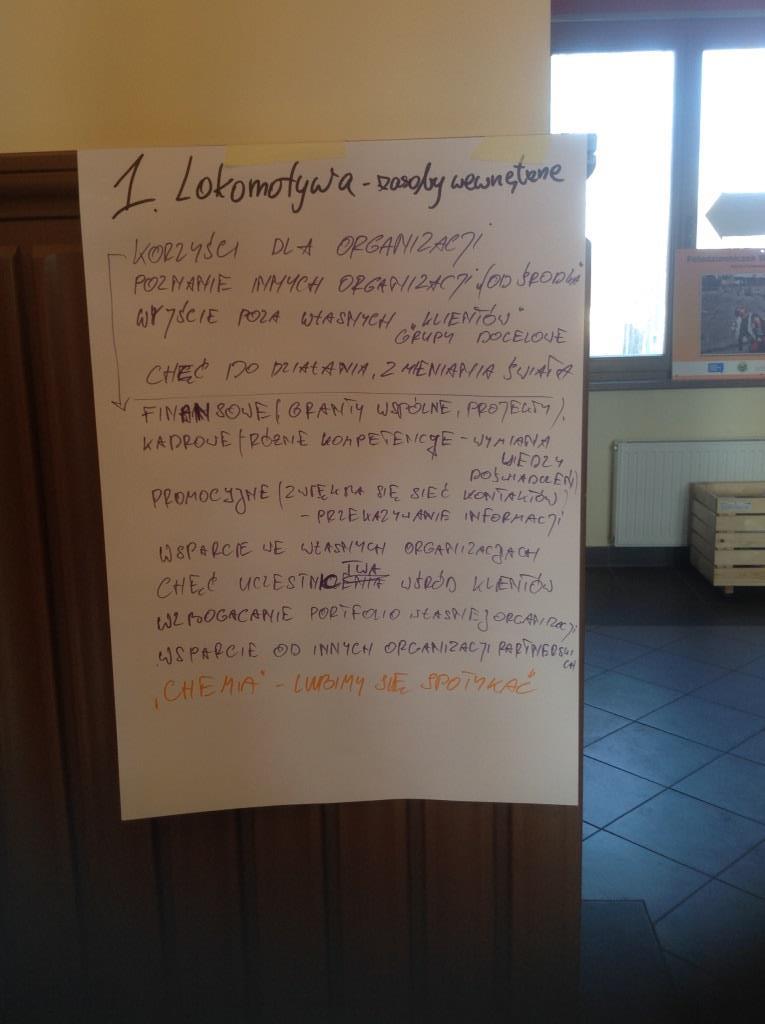 1. Lokomotywa - zasoby wewnętrzne
KORZYŚCI DLA ORGANIZACJI
POZNANIE INNYCH ORGANIZACJI (OD ŚRODKA
WYJŚCIE POZA WŁASNYCH „KLIENTÓW"
GRUPY DOCELOWE
CHĘĆ DO DZIAŁANIA, ZMIENIANIA ŚWIATA
FINANSOWE (GRANTY WSPÓLNE, PROJEKTY).
KADROWE (RÓŻNE KOMPETENCJE - WYMIANA
WIEDZY
DOŚWIADCZEŃ)
PROMOCYJNE (ZWIĘKSZA SIĘ SIEĆ KONTAKTÓW)
- PRZEKAZYWANIE INFORMACJI
WSPARCIE WE WŁASNYCH ORGANIZACJACH
CHĘĆ UCZESTNICTWA WŚRÓD KLIENTÓW
WZBOGACANIE PORTFOLIO WŁASNEJ ORGANIZACJI
WSPARCIE OD INNYCH ORGANIZACJI PARTNERSKI
CH
„CHEMIA" - LUBIMY SIĘ SPOTYKAĆ